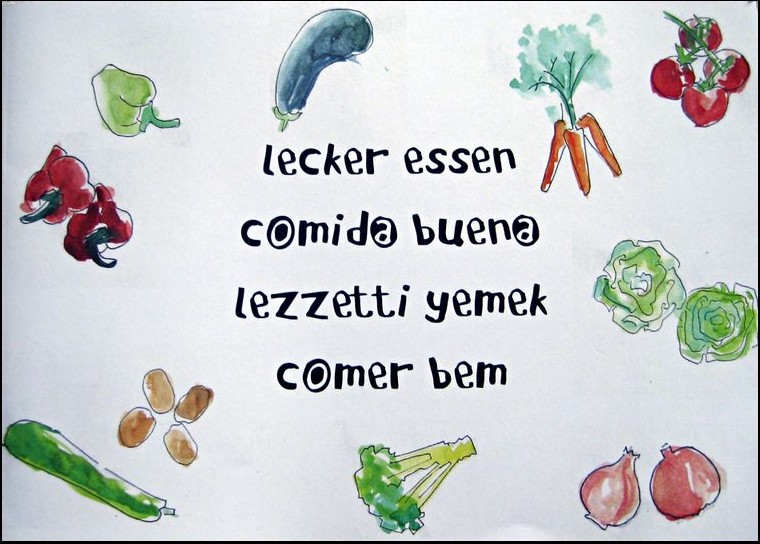 lecker essen
comida buena
lezzetti yemek
comer bem